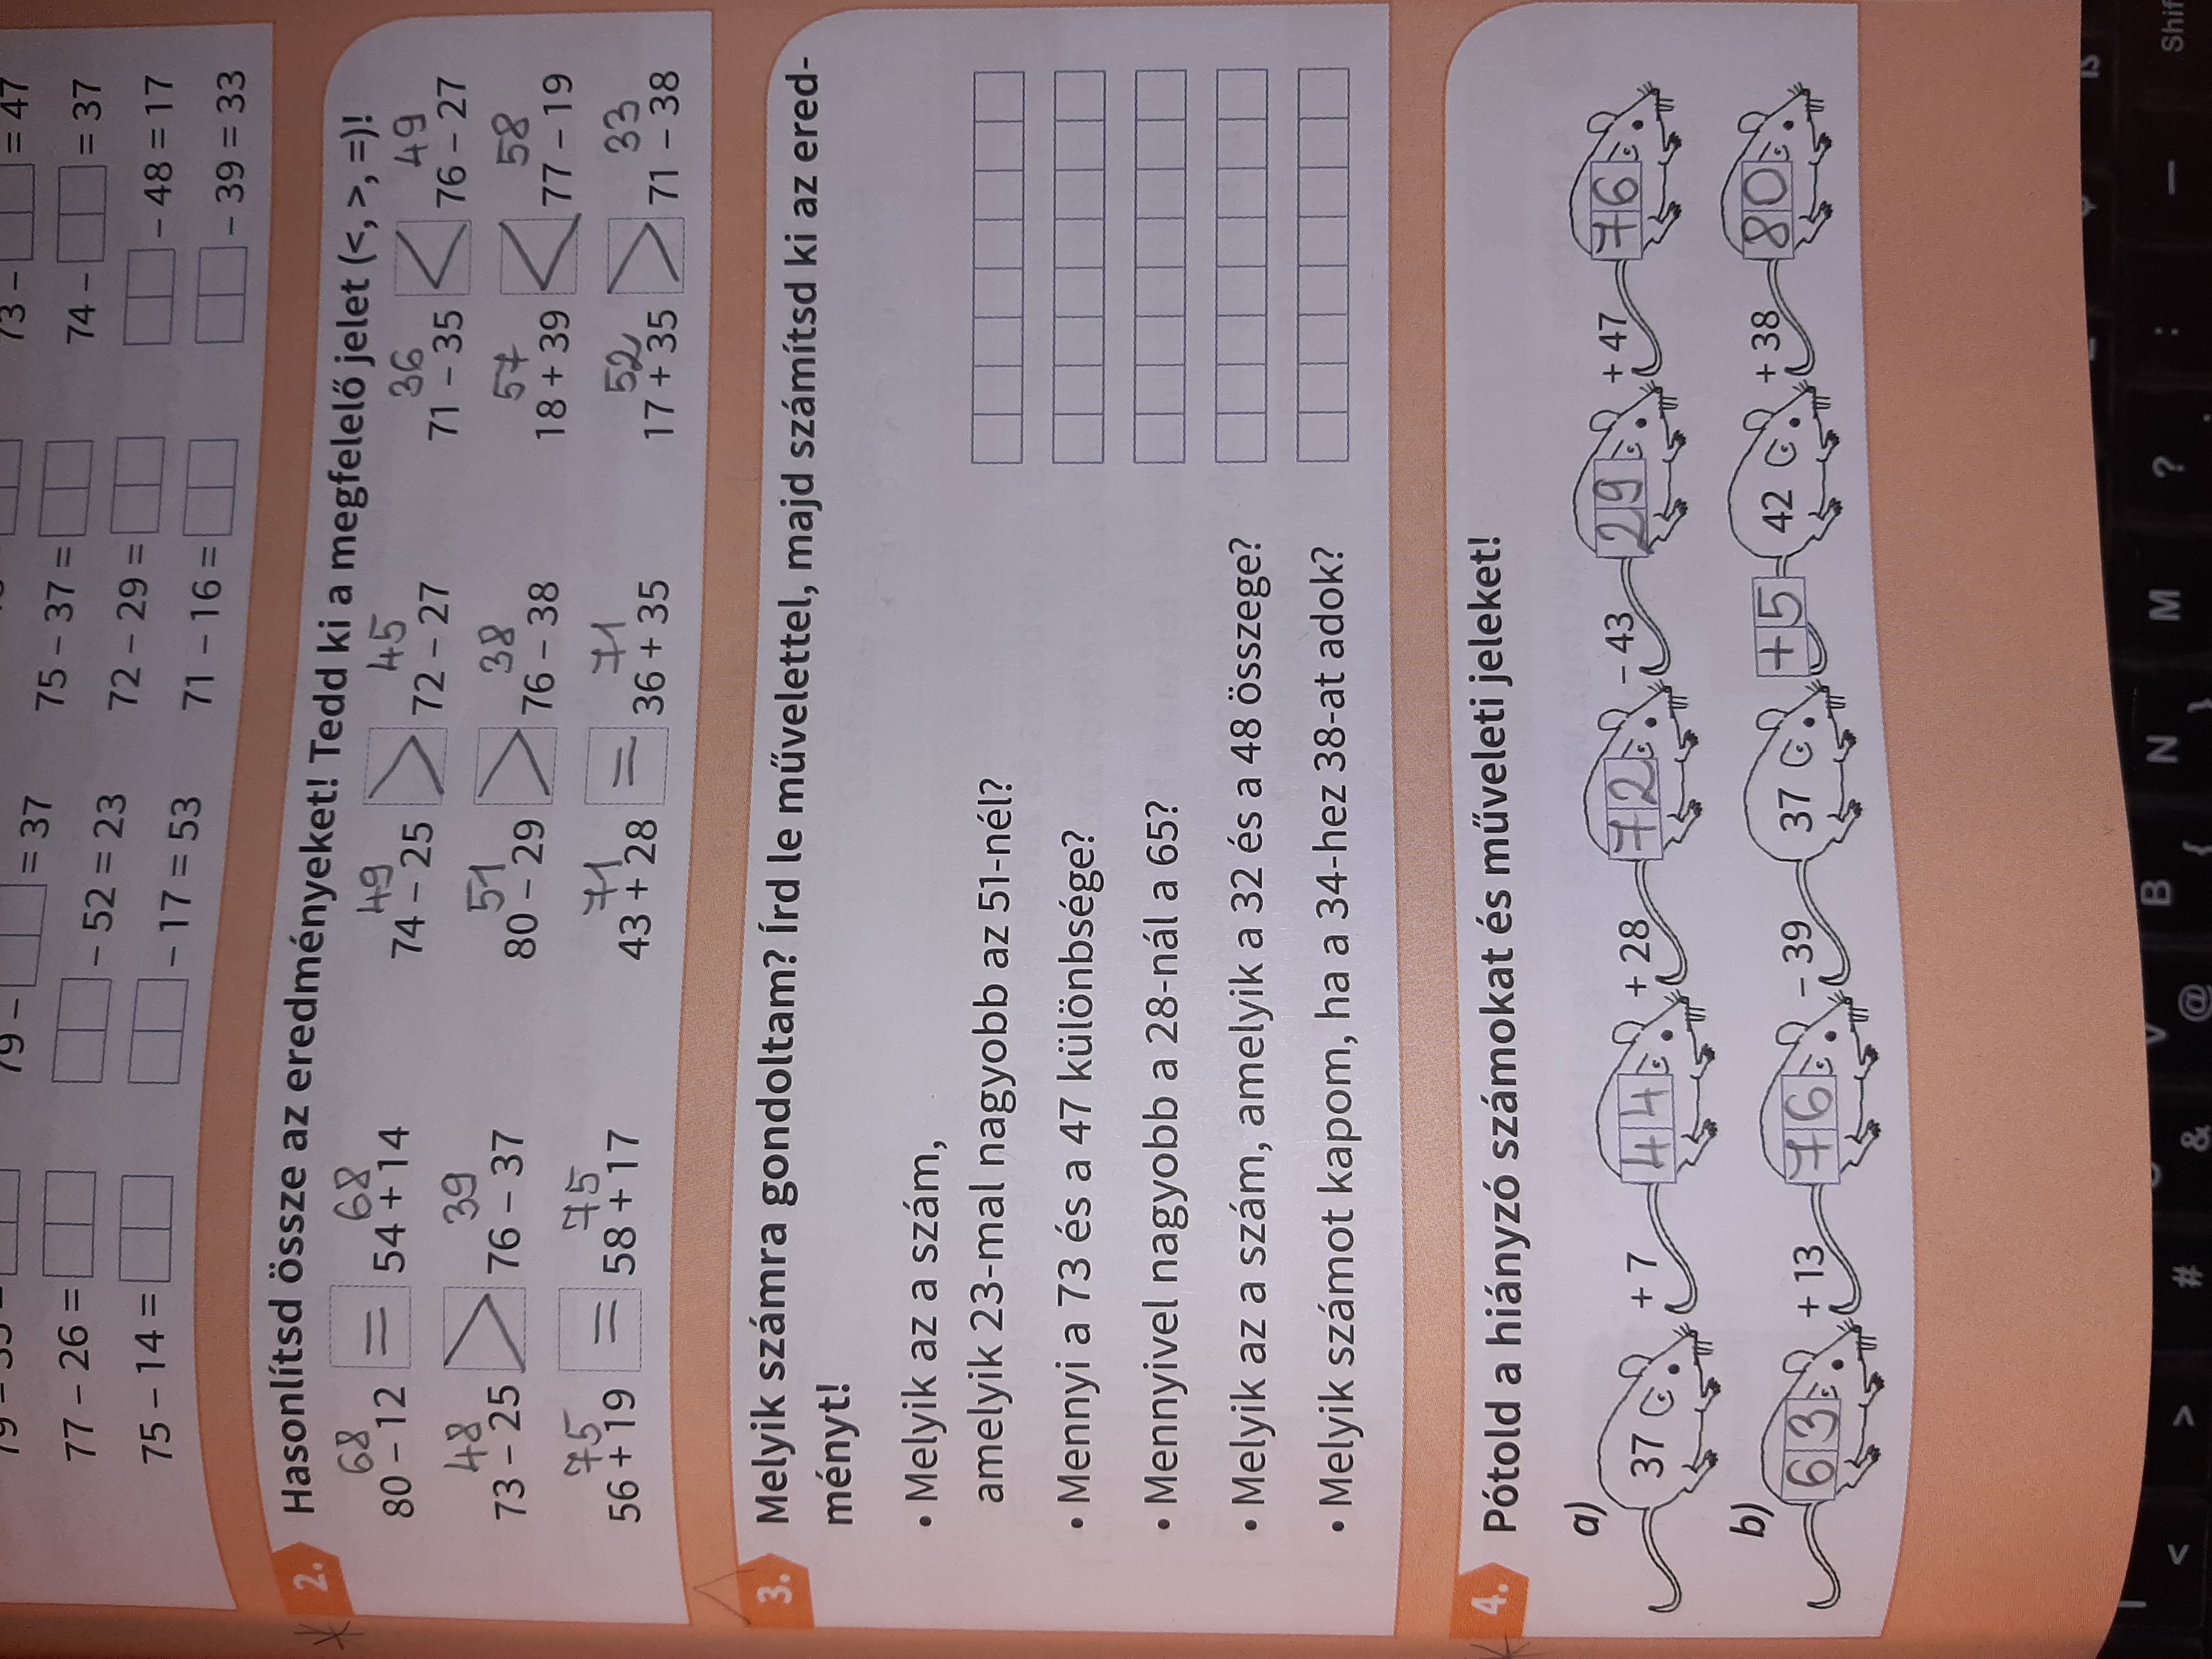 79 –
= 37
73 –
= 47
77 – 26 =
– 52 = 23
75 – 37 =
74 –
= 37
75 – 14 =
– 17 = 53
72 – 29 =
– 48 = 17
71 – 16 =
– 39 = 33
2. Hasonlítsd össze az eredményeket! Tedd ki a megfelelő jelet (<, >, =)!
68 68 49 45 36 49
80 – 12 = 54 + 14 74 – 25 > 72 – 27 71 – 35 < 76 – 27
48 39 51 38 57 58
73 – 25 > 76 – 37 80 – 29 > 76 – 38 18 + 39 < 77 – 19
75 75 71 71 52 33
56 + 19 = 58 + 17 43 + 28 = 36 + 35 17 + 35 > 71 – 38
3. Melyik számra gondoltam? Írd le művelettel, majd számítsd ki az ered-
ményt!
• Melyik az a szám,
amelyik 23-mal nagyobb az 51-nél?
• Mennyi a 73 és a 47 különbsége?
• Mennyivel nagyobb a 28-nál a 65?
• Melyik az a szám, amelyik a 32 és a 48 összege?
• Melyik számot kapom, ha a 34-hez 38-at adok?
4. Pótold a hiányzó számokat és műveleti jeleket!
a)
37 + 7 44 + 28 72 – 43 29 + 47 76
b)
63 + 13 76 – 39 37 +5 42 + 38 80
B N M ? : –
< > # & @ { } Shif